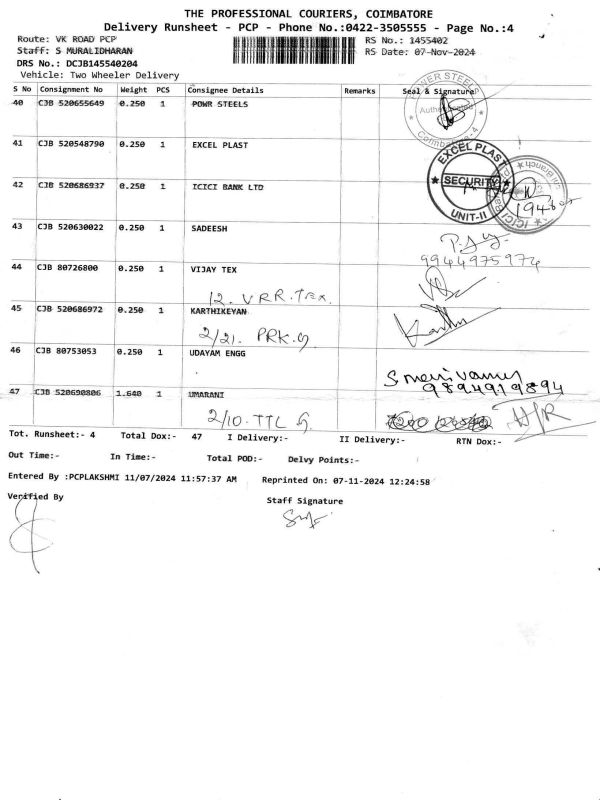 THE PROFESSIONAL COURIERS, COIMBATORE
Delivery Runsheet - PCP - Phone No.:0422-3505555 - Page No.:4
Route: VK ROAD PCP RS No.: 1455402
Staff: S MURALIDHARAN RS Date: 07-Nov-2024
DRS No.: DCJB145540204
Vehicle: Two Wheeler Delivery
S No Consignment No Weight PCS Consignee Details Remarks Seal & Signature
40 CJB 520655649 0.250 1 POWR STEELS
41 CJB 520548790 0.250 1 EXCEL PLAST
EXCEL PLAST
SECURITY
UNIT-II
42 CJB 520686937 0.250 1 ICICI BANK LTD
43 CJB 520630022 0.250 1 SADEESH
9944975974
44 CJB 80726800 0.250 1 VIJAY TEX
12. VRR. Tex
45 CJB 520686972 0.250 1 KARTHIKEYAN
2/21. PRK.G
46 CJB 80753053 0.250 1 UDAYAM ENGG
9894919894
47 CJB 520690806 1.640 1 UMARANI
2/10. TTL G
Tot. Runsheet:- 4 Total Dox:- 47 I Delivery:- II Delivery:- RTN Dox:-
Out Time:- In Time:- Total POD:- Delvy Points:-
Entered By :PCPLAKSHMI 11/07/2024 11:57:37 AM Reprinted On: 07-11-2024 12:24:58
Verified By Staff Signature